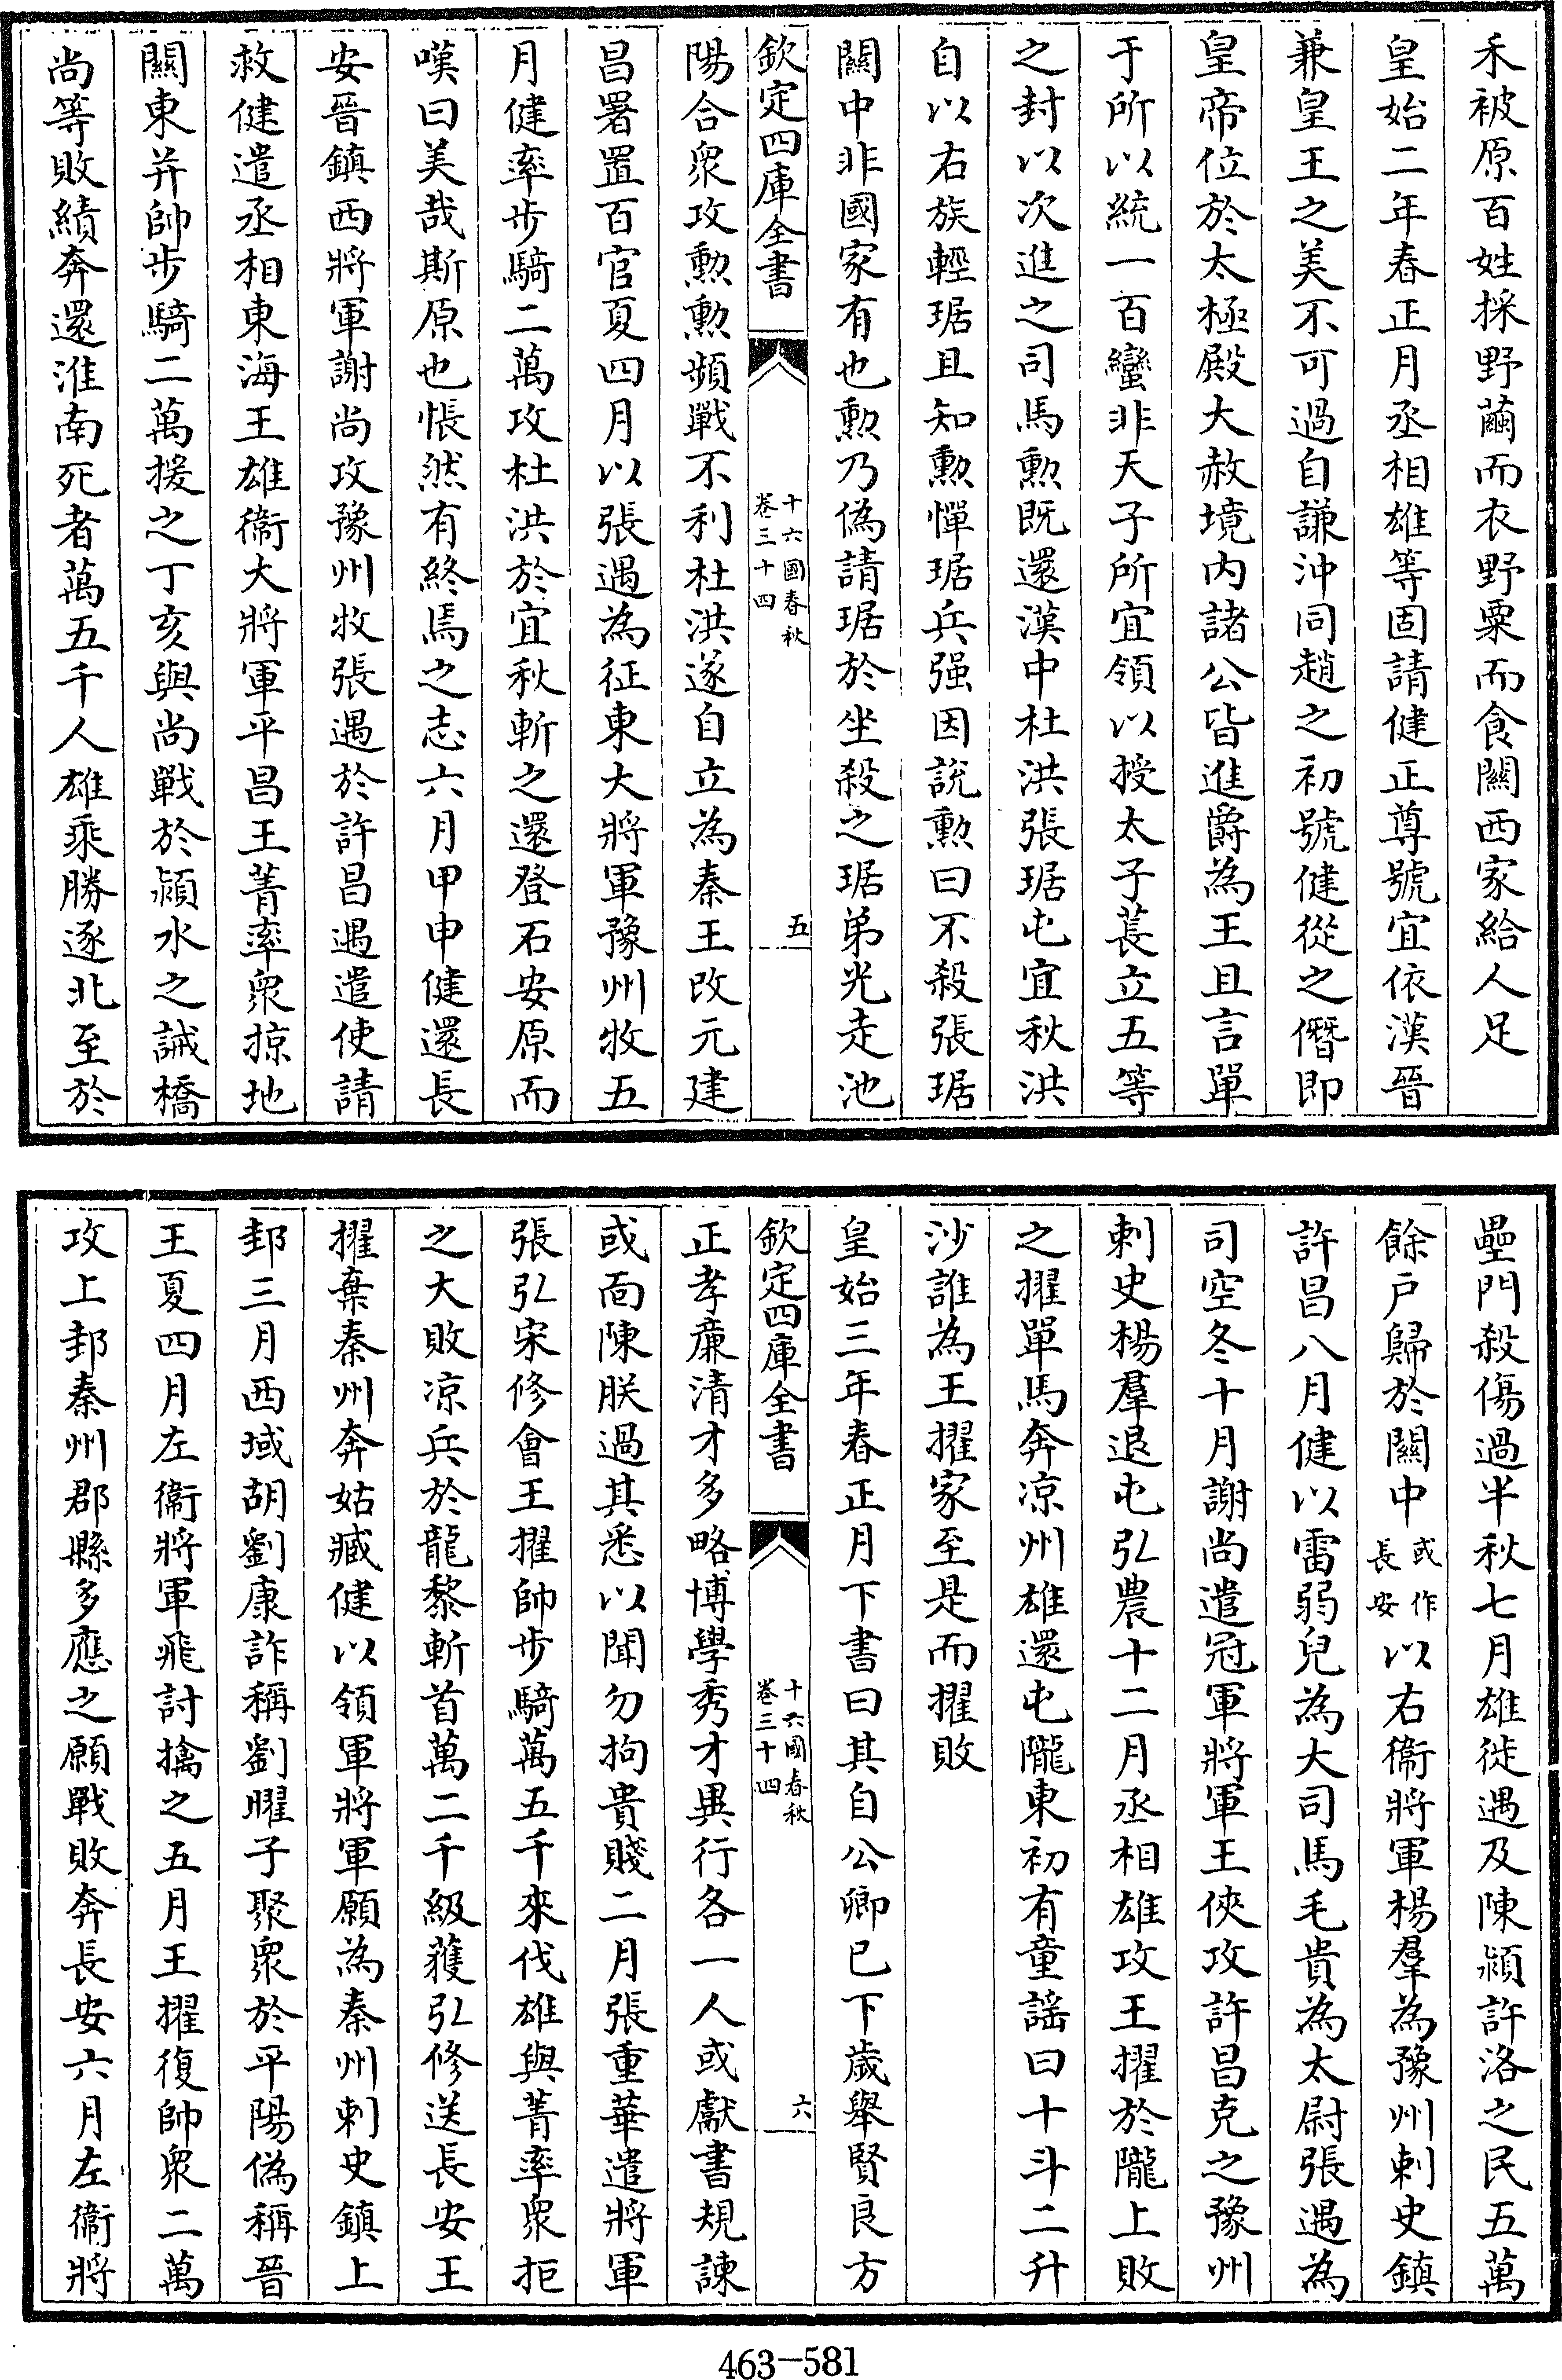 禾被原百姓採野繭而衣野粟而食關西家給人足
皇始二年春正月丞相雄等固請健正尊號宜依漢晉
兼皇王之美不可過自謙沖同趙之初號健從之僭即
皇帝位於太極殿大赦境内諸公皆進爵為王且言單
于所以統一百蠻非天子所宜領以授太子萇立五等
之封以次進之司馬勲既還漢中杜洪張琚屯宜秋洪
自以右族輕琚且知勲憚琚兵强因説勲曰不殺張琚
關中非國家有也勲乃偽請琚於坐殺之琚弟光走池
欽定四庫全書
十六國春秋
卷三十四
五
陽合衆攻勲勲頻戰不利杜洪遂自立為秦王改元建
昌署置百官夏四月以張遇為征東大將軍豫州牧五
月健率步騎二萬攻杜洪於宜秋斬之還登石安原而
嘆曰美哉斯原也悵然有終焉之志六月甲申健還長
安晉鎮西將軍謝尚攻豫州牧張遇於許昌遇遣使請
救健遣丞相東海王雄衛大將軍平昌王菁率衆掠地
關東并帥步騎二萬援之丁亥與尚戰於潁水之誡橋
尚等敗績奔還淮南死者萬五千人雄乘勝逐北至於
壘門殺傷過半秋七月雄徙遇及陳潁許洛之民五萬
餘户歸於關中或作長安以右衛將軍楊羣為豫州刺史鎮
許昌八月健以雷弱兒為大司馬毛貴為太尉張遇為
司空冬十月謝尚遣冠軍將軍王俠攻許昌克之豫州
刺史楊羣退屯弘農十二月丞相雄攻王擢於隴上敗
之擢單馬奔凉州雄還屯隴東初有童謡曰十斗二升
沙誰為王擢家至是而擢敗
皇始三年春正月下書曰其自公卿已下歲舉賢良方
欽定四庫全書
十六國春秋
卷三十四
六
正孝廉清才多略博學秀才異行各一人或獻書規諫
或面陳朕過其悉以聞勿拘貴賤二月張重華遣將軍
張弘宋修會王擢帥步騎萬五千來伐雄與菁率衆拒
之大敗凉兵於龍黎斬首萬二千級獲弘修送長安王
擢棄秦州奔姑臧健以領軍將軍願為秦州刺史鎮上
邽三月西域胡劉康詐稱劉曜子聚衆於平陽偽稱晉
王夏四月左衛將軍飛討擒之五月王擢復帥衆二萬
攻上邽秦州郡縣多應之願戰敗奔長安六月左衛將
463-581